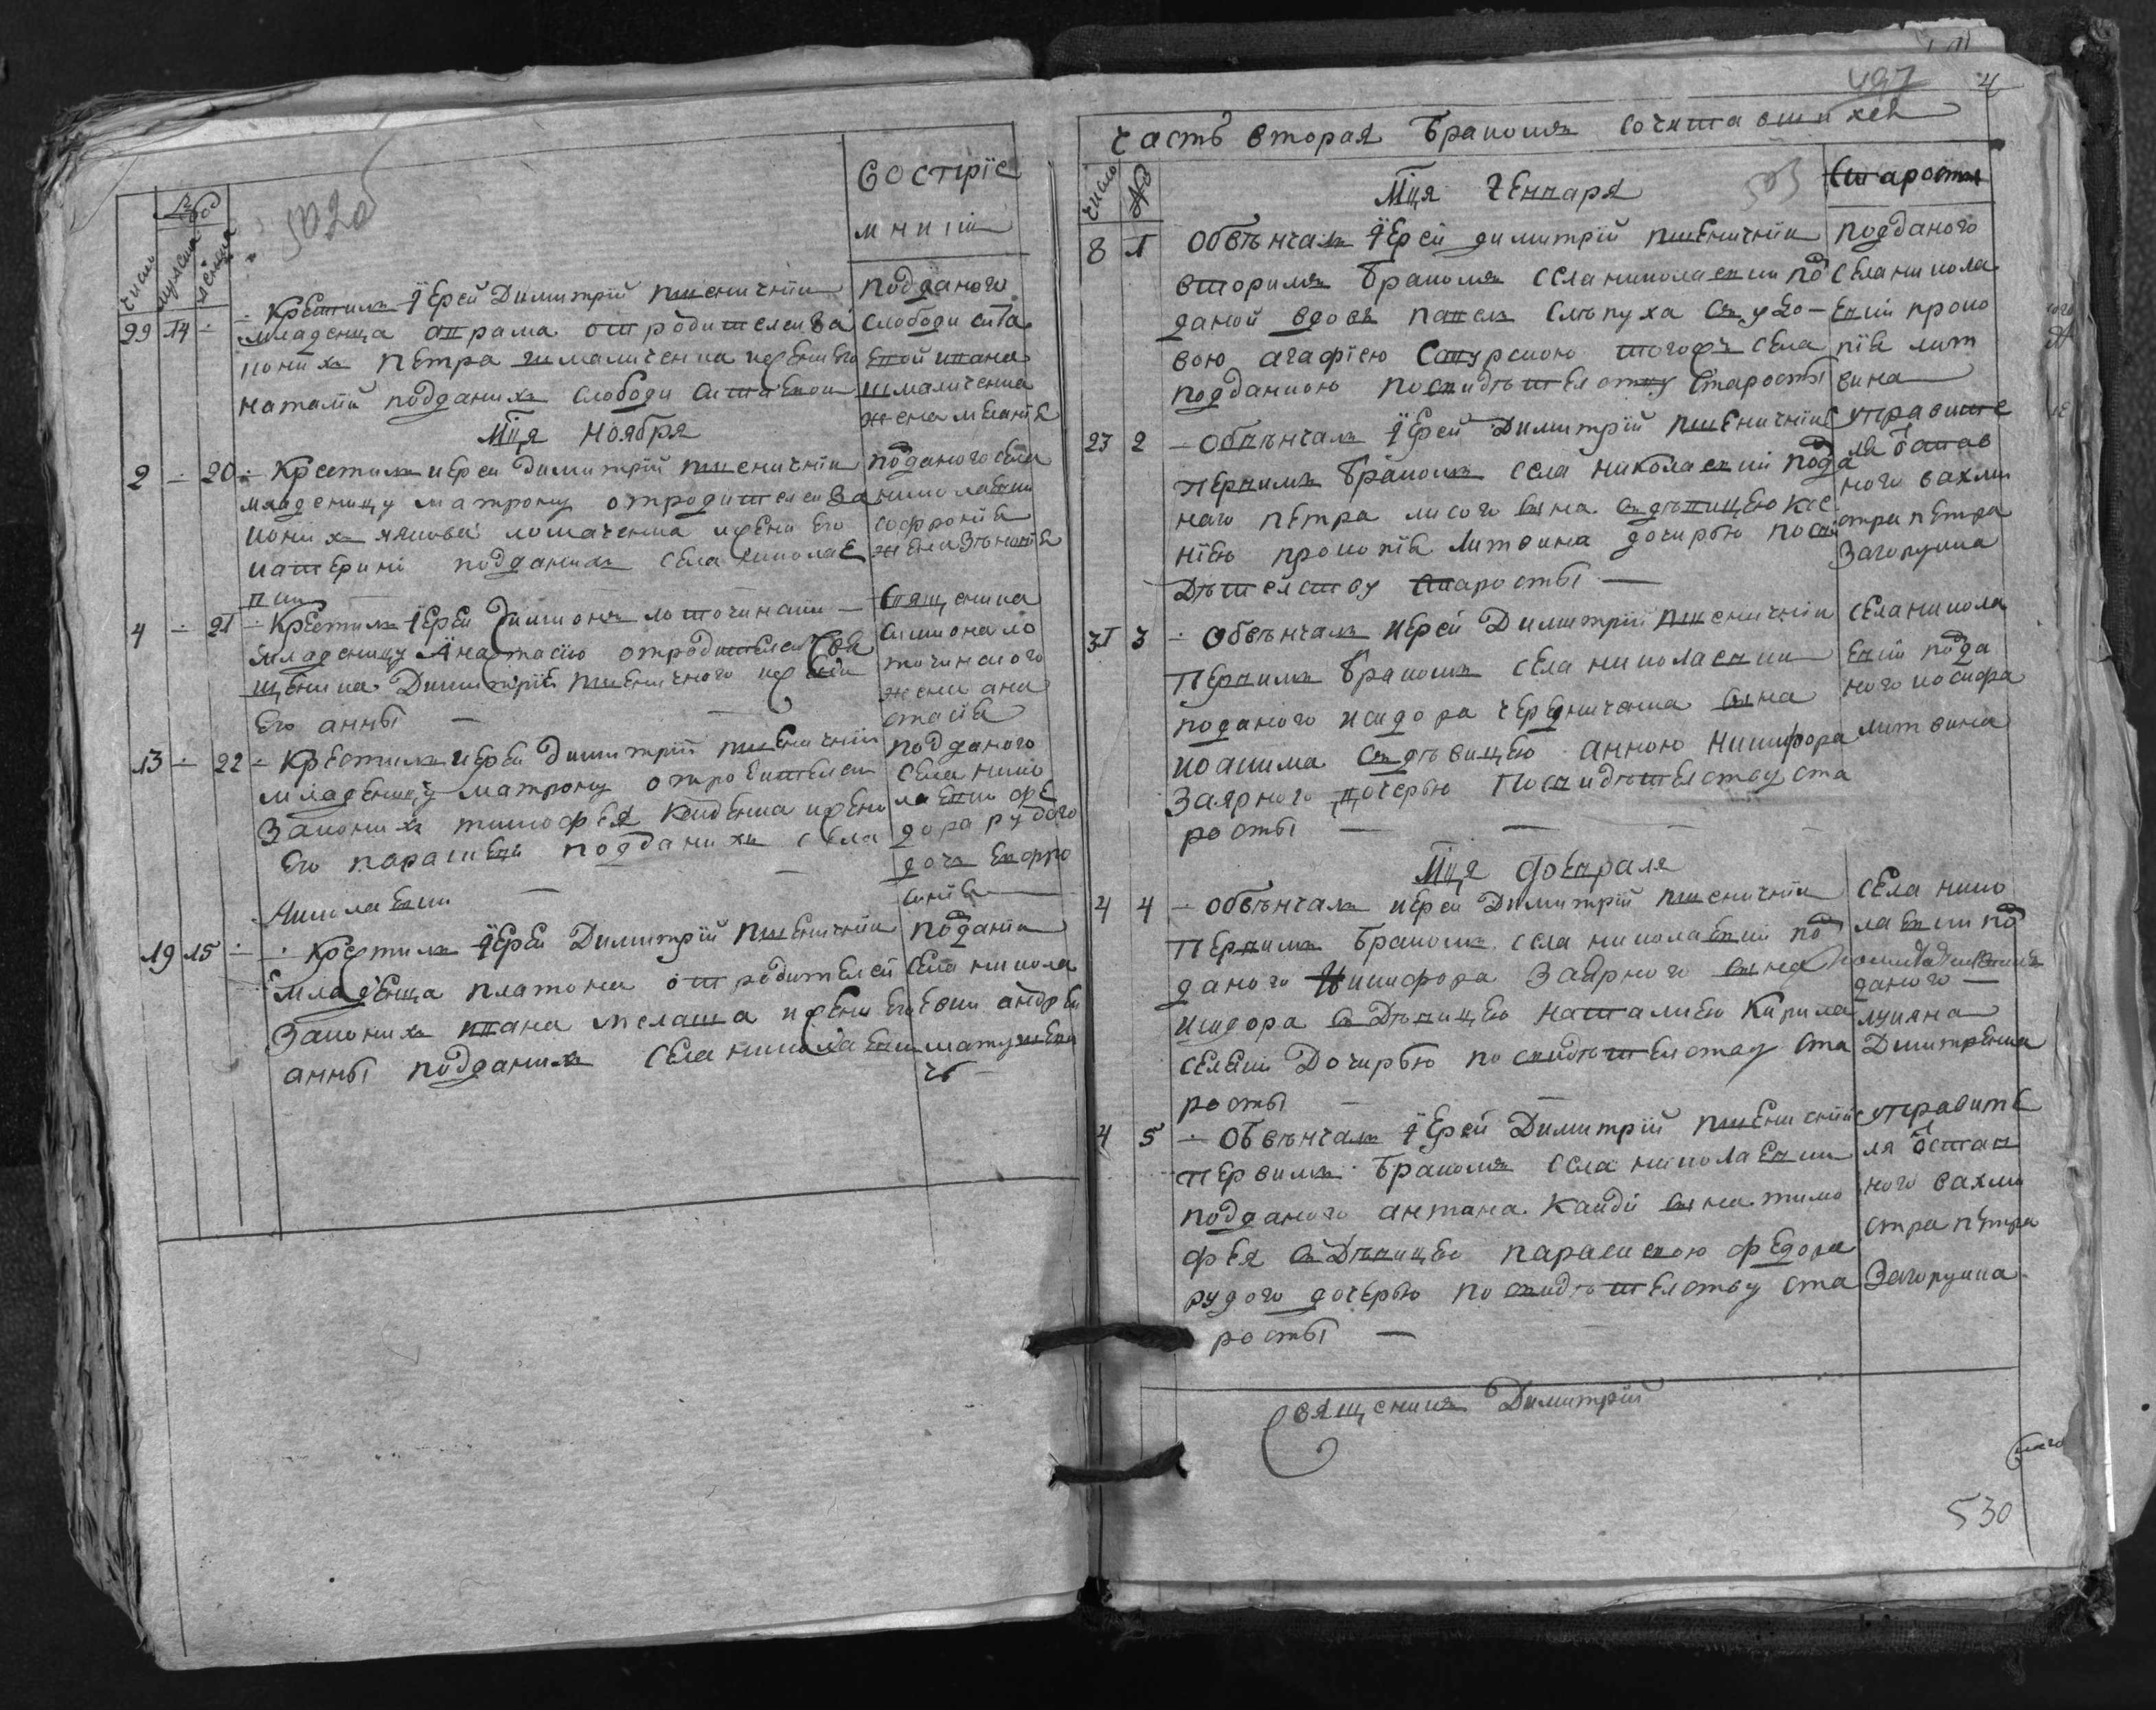 502об
число
мужеска
женска
Востріе
мниш
29 14 Крестилъ їерей Димитрій пшеничній
младенца аврама от родителей за
конихъ петра шмаличенка и жени его
наталій подданихъ слободи
подданого
слободи
ивана
шмаличенка
жена меланія
Мця ноября
2 20 Крестилъ иерей Димитрій пшеничній
младеницу матрону от родителей за
конихъ якова ломаченка и жени его
катерини подданихъ села николае
вки
подданого села
николаевки
софронія
жена
4 21 Крестилъ їерей Симионъ
младеницу Анастасію от родителей свя
щеника Димитрія пшеничного и жени
его анны
священика
симиона ло
точинского
жени ана
стасіе
13 22 Крестилъ иерей Димитрій пшеничній
младеницу матрону от родителей
законихъ тимофея Кайденка и жени
его параскеви подданихъ села
николаевки
подданого
села нико
лаевки фе
дора рудого
дочь евфро
синія
19 15 Крестилъ їерей Димитрій пшеничній
младенца платона от родителей
законихъ ивана мелаша и жени его
анны подданихъ села николаевки
подданій
села никола
евки андрей
матушеви
чъ
497
4
Часть вторая бракомъ сочитавшихся
число
503
Мця Генваря
Старости
8 1 Обвѣнчалъ їерей димитрій пшеничній
вторимъ бракомъ села николаевки под
даной вдовъ павелъ слѣпуха съ удо
вою агафією тогожъ села
подданною по свидѣтелству старосты
подданого
села никола
евки проко
пія лит
вина
23 2 Обвѣнчалъ їерей Димитрій пшеничній
первимъ бракомъ села николаевки подда
ного петра лисого сына съ дѣвицею ксе
нією прокопія литвина дочирью по сви
дѣтелству старосты
управите
ля
ного вахми
стра петра
Загорулка
31 3 Обвѣнчалъ иерей Димитрій пшеничній
первимъ бракомъ села николаевки
подданого исидора чередниченка сына
иоакима съ дѣвицею анною никифора
Заярного дочерью по свидѣтелству ста
росты
села никола
евки подда
ного иосифа
литвина
Мця Февраля
4 4 Обвѣнчалъ иерей Димитрій пшеничній
первимъ бракомъ села николаевки под
даного никифора Заярного сына
исидора съ дѣвицею наталиею Кирила
дочирью по свидѣтелству ста
росты
села нико
лаевки под
даного
лукяна
Дмитренка
4 5 Обвѣнчалъ їерей Димитрій пшеничній
первимъ бракомъ села николаевки
подданого антана Кайди сына тимо
фея съ дѣвицею параскевою федора
рудого дочерью по свидѣтелству ста
росты
управите
ля
ного вахми
стра петра
Загорулка
Священикъ Димитрій
530